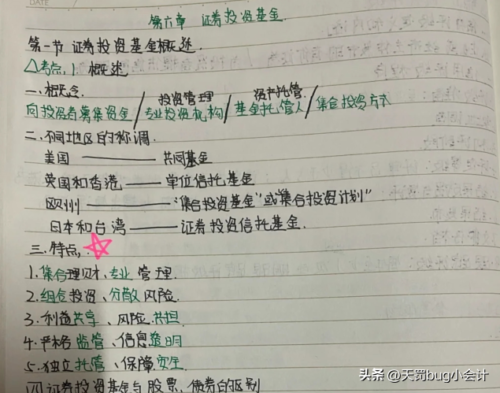 第六章 证券投资基金
第一节 证券投资基金概述.
△考点1 概述
一、概念 投资管理 资产托管
向投资者募集资金/专业投资机构/基金托管人/集合投资方式
二.不同地区的称谓.
美国——共同基金
英国和香港——单位信托基金
欧洲——"集合投资基金"或"集合投资计划"
日本和台湾——证券投资信托基金.
三.特点.
1.集合理财、专业管理.
2.组合投资、分散风险.
3.利益共享、风险共担.
4.严格监管、信息透明
5.独立托管、保障安全
四证券投资基金与股票、债券的区别
头条 @天蜀bug小会计